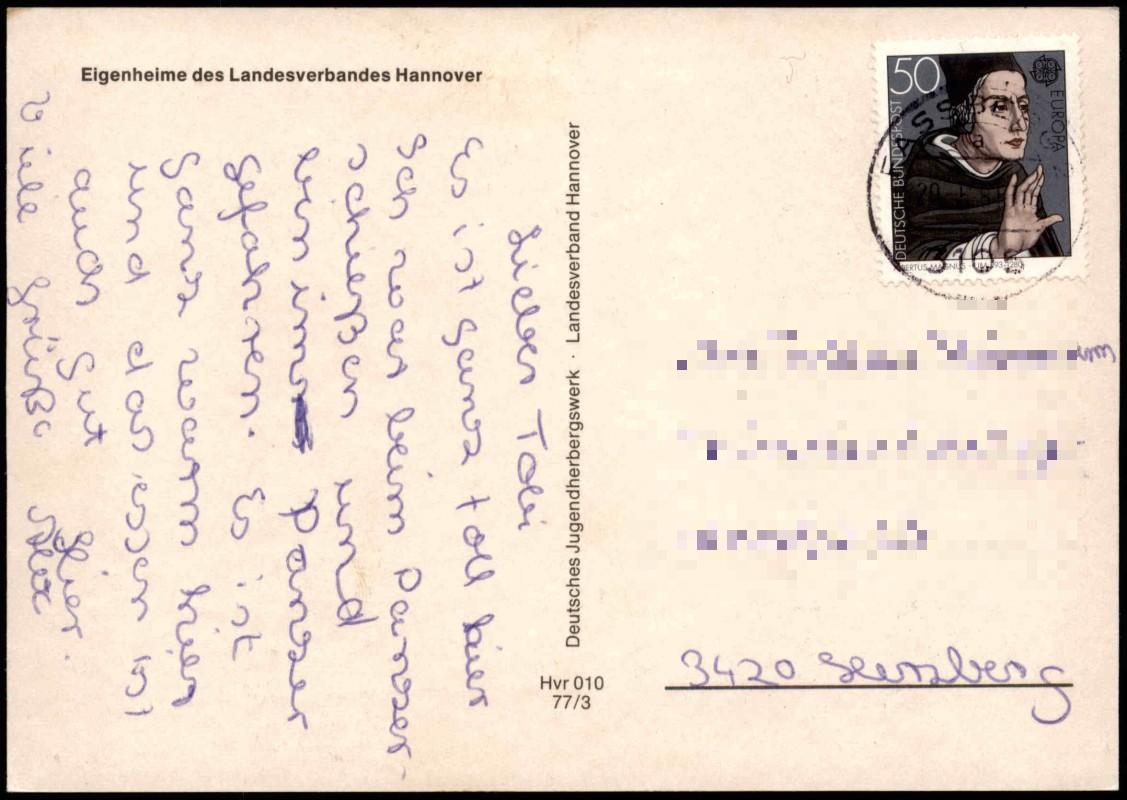 Eigenheime des Landesverbandes Hannover
Lieber Tobi
Es ist ganz toll hier
Ich war beim Panzer-
schießen und
bin im Panzer
gefahren. Es ist
ganz warm hier
und das essen ist
auch gut hier.
Viele Grüße Alex
Deutsches Jugendherbergswerk · Landesverband Hannover
Hvr 010
77/3
50
DEUTSCHE BUNDESPOST
EUROPA
ALBERTUS MAGNUS · UM 1193-1280
3420 Herzberg